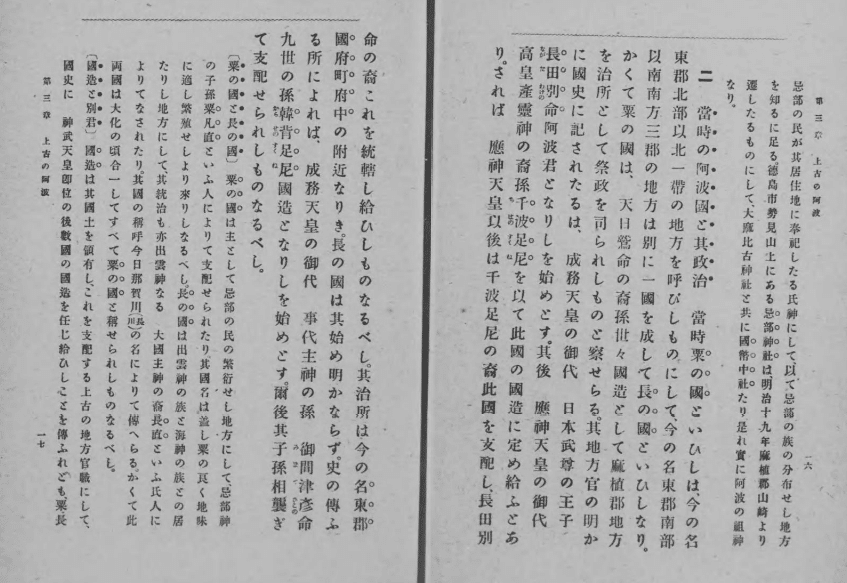 第三章　上古の阿波
一六
忌部の民が其居住地に奉祀したる氏神にして、以て忌部の族の分布せし地方
を知るに足る。德島市勢見山上にある忌部神社は明治十九年麻植郡山崎より
遷したるものにして、大麻比古神社と共に國幣中社たり是れ實に阿波の祖神
なり。
二　當時の阿波國と其政治　當時粟の國といひしは、今の名
東郡北部以北一帶の地方を呼びしものにして、今の名東郡南部
以南南方三郡の地方は別に一國を成して長の國といひしなり。
かくて粟の國は、天日鷲命の裔孫世々國造として麻植郡地方
を治所として祭政を司られしものと察せらる。其地方官の明か
に國史に記されたるは、成務天皇の御代　日本武尊の王子
長田別命阿波君となりしを始めとす。其後　應神天皇の御代
高皇產靈神の裔孫千波足尼を以て此國の國造に定め給ふとあ
り。されば　應神天皇以後は千波足尼の裔此國を支配し、長田別
命の裔これを統轄し給ひしものなるべし。其治所は今の名東郡
國府町府中の附近なりき。長の國は其始め明かならず。史の傳ふ
る所によれば、成務天皇の御代　事代主神の孫　御間津彥命
九世の孫韓背足尼國造となりしを始めとす。爾後其子孫相襲ぎ
て支配せられしものなるべし。
〔粟の國と長の國〕　粟の國は主として忌部の民の繁衍せし地方にして、忌部神
の子孫粟凡直といふ人によりて支配せられたり其國名は蓋し粟の良く地味
に適し繁殖せしより來りしなるべし。長の國は出雲神の族と海神の族との居
たりし地方にして、其統治も亦出雲神なる　大國主神の裔長直といふ氏人に
よりてなされたり。其國の稱呼今日那賀川(長川)の名によりて傳へらる。かくて此
兩國は大化の頃合一してすべて粟の國と稱せられしものなるべし。
〔國造と別君〕　國造は其國土を領有し、これを支配する上古の地方官職にして、
國史に　神武天皇卽位の後數國の國造を任じ給ひしことを傳ふれども粟長
第三章　上古の阿波
一七